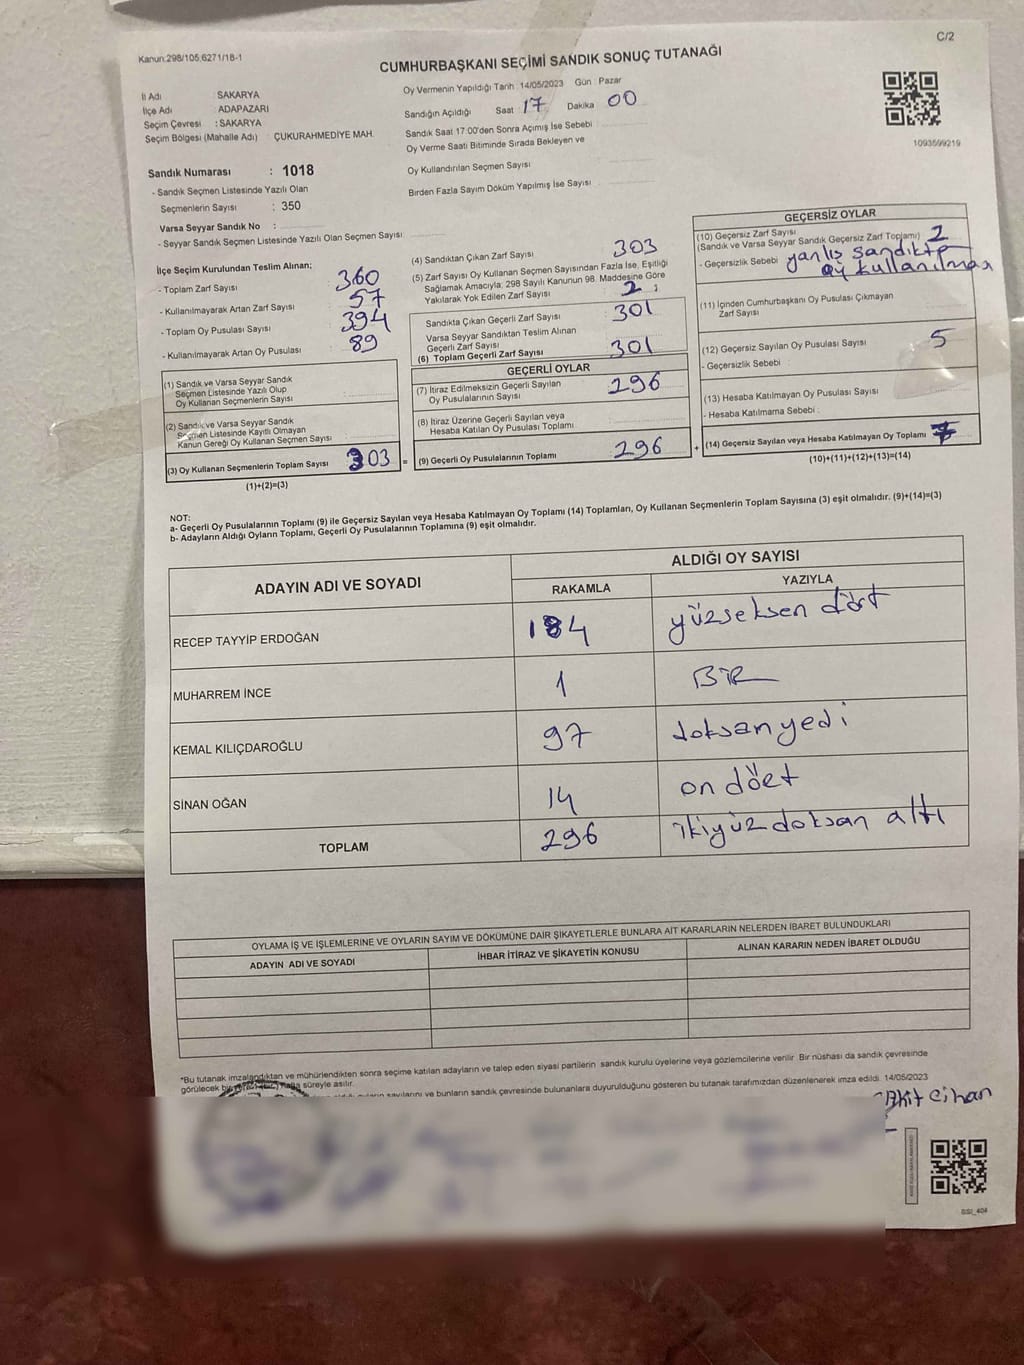 Kanun:298/105,6271/18-1
C/2
CUMHURBAŞKANI SEÇİMİ SANDIK SONUÇ TUTANAĞI
İl Adı : SAKARYA
İlçe Adı : ADAPAZARI
Seçim Çevresi : SAKARYA
Seçim Bölgesi (Mahalle Adı) : ÇUKURAHMEDİYE MAH.
Oy Vermenin Yapıldığı Tarih : 14/05/2023 Gün : Pazar
Sandığın Açıldığı Saat 17 Dakika 00
Sandık Saat 17:00'den Sonra Açımış İse Sebebi :
Oy Verme Saati Bitiminde Sırada Bekleyen ve
Oy Kullandırılan Seçmen Sayısı :
Birden Fazla Sayım Döküm Yapılmış İse Sayısı :
1093599219
Sandık Numarası : 1018
- Sandık Seçmen Listesinde Yazılı Olan
Seçmenlerin Sayısı : 350
Varsa Seyyar Sandık No :
- Seyyar Sandık Seçmen Listesinde Yazılı Olan Seçmen Sayısı :
İlçe Seçim Kurulundan Teslim Alınan;
- Toplam Zarf Sayısı : 360
- Kullanılmayarak Artan Zarf Sayısı : 57
- Toplam Oy Pusulası Sayısı : 394
- Kullanılmayarak Artan Oy Pusulası : 89
(1) Sandık ve Varsa Seyyar Sandık
Seçmen Listesinde Yazılı Olup
Oy Kullanan Seçmenlerin Sayısı :
(2) Sandık ve Varsa Seyyar Sandık
Seçmen Listesinde Kayıtlı Olmayan
Kanun Gereği Oy Kullanan Seçmen Sayısı :
(3) Oy Kullanan Seçmenlerin Toplam Sayısı : 303 =
(1)+(2)=(3)
(4) Sandıktan Çıkan Zarf Sayısı : 303
(5) Zarf Sayısı Oy Kullanan Seçmen Sayısından Fazla İse, Eşitliği
Sağlamak Amacıyla; 298 Sayılı Kanunun 98. Maddesine Göre
Yakılarak Yok Edilen Zarf Sayısı : 2
Sandıkta Çıkan Geçerli Zarf Sayısı : 301
Varsa Seyyar Sandıktan Teslim Alınan
Geçerli Zarf Sayısı :
(6) Toplam Geçerli Zarf Sayısı : 301
GEÇERLİ OYLAR
(7) İtiraz Edilmeksizin Geçerli Sayılan
Oy Pusulalarının Sayısı : 296
(8) İtiraz Üzerine Geçerli Sayılan veya
Hesaba Katılan Oy Pusulası Toplamı :
(9) Geçerli Oy Pusulalarının Toplamı : 296 +
GEÇERSİZ OYLAR
(10) Geçersiz Zarf Sayısı
(Sandık ve Varsa Seyyar Sandık Geçersiz Zarf Toplamı) : 2
- Geçersizlik Sebebi : yanlış sandıkta
oy kullanılması
(11) İçinden Cumhurbaşkanı Oy Pusulası Çıkmayan
Zarf Sayısı :
(12) Geçersiz Sayılan Oy Pusulası Sayısı : 5
- Geçersizlik Sebebi :
(13) Hesaba Katılmayan Oy Pusulası Sayısı :
- Hesaba Katılmama Sebebi :
(14) Geçersiz Sayılan veya Hesaba Katılmayan Oy Toplamı : 7
(10)+(11)+(12)+(13)=(14)
NOT:
a- Geçerli Oy Pusulalarının Toplamı (9) ile Geçersiz Sayılan veya Hesaba Katılmayan Oy Toplamı (14) Toplamları, Oy Kullanan Seçmenlerin Toplam Sayısına (3) eşit olmalıdır. (9)+(14)=(3)
b- Adayların Aldığı Oyların Toplamı, Geçerli Oy Pusulalarının Toplamına (9) eşit olmalıdır.
ADAYIN ADI VE SOYADI
ALDIĞI OY SAYISI
RAKAMLA YAZIYLA
RECEP TAYYİP ERDOĞAN 184 yüzseksen dört
MUHARREM İNCE 1 BİR
KEMAL KILIÇDAROĞLU 97 doksanyedi
SİNAN OĞAN 14 on dört
TOPLAM 296 ikiyüz doksan altı
OYLAMA İŞ VE İŞLEMLERİNE VE OYLARIN SAYIM VE DÖKÜMÜNE DAİR ŞİKAYETLERLE BUNLARA AİT KARARLARIN NELERDEN İBARET BULUNDUKLARI
ADAYIN ADI VE SOYADI İHBAR İTİRAZ VE ŞİKAYETİN KONUSU ALINAN KARARIN NEDEN İBARET OLDUĞU
*Bu tutanak imzalandıktan ve mühürlendikten sonra seçime katılan adayların ve talep eden siyasi partilerin sandık kurulu üyelerine veya gözlemcilerine verilir. Bir nüshası da sandık çevresinde
görülecek bir süreyle asılır.
sayılarını ve bunların sandık çevresinde bulunanlara duyurulduğunu gösteren bu tutanak tarafımızdan düzenlenerek imza edildi. 14/05/2023
Cihan
BSI_404